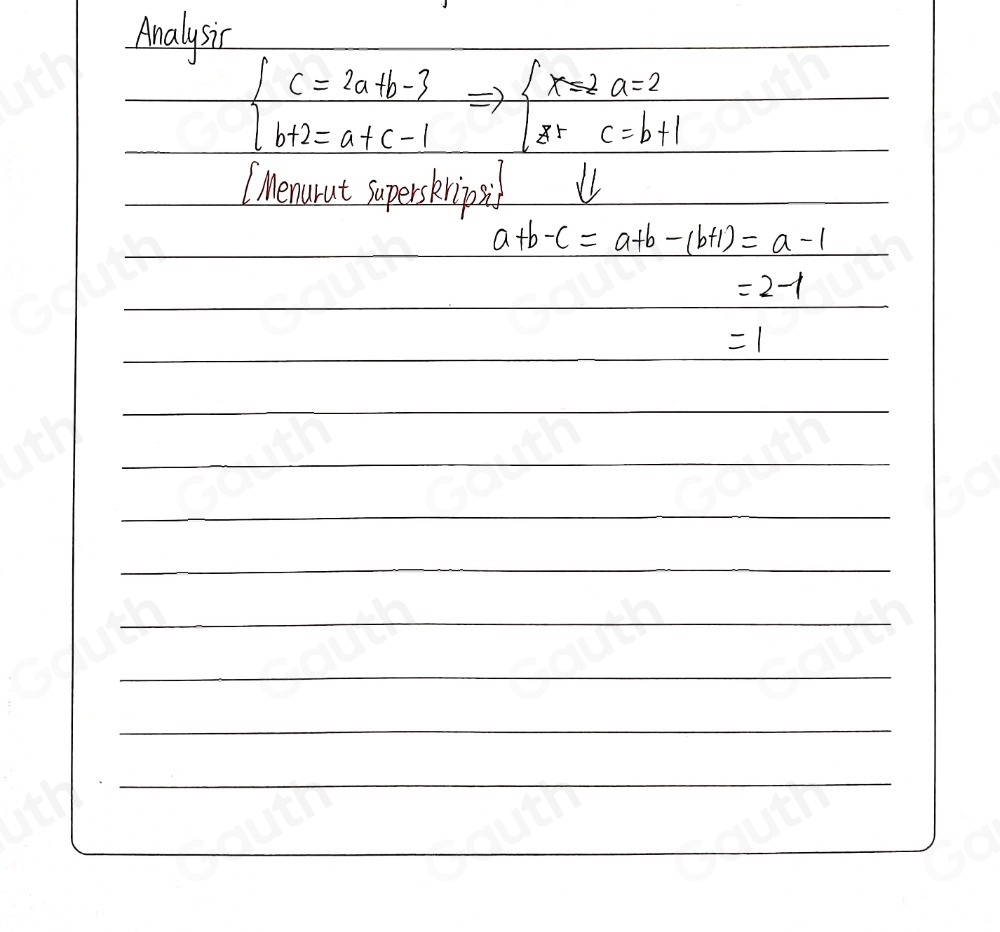 Analysis
c = 2a+b-3 ⇒ a=2
b+2 = a+c-1 c=b+1
[Menurut superskripsi] ⇓
a+b-c = a+b-(b+1) = a-1
=2-1
=1
Gauth